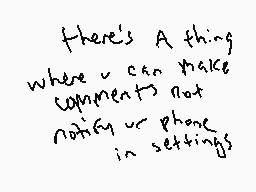 there's A thing
where u can make
comments not
notify ur phone
in settings